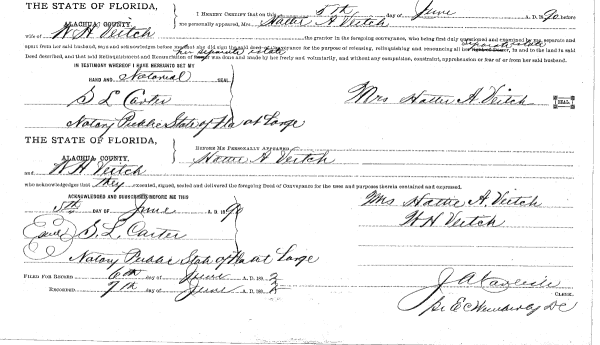 THE STATE OF FLORIDA,
ALACHUA COUNTY.
I HEREBY CERTIFY that on this 5th day of June A. D. 1890, before
me personally appeared, Mrs. Hattie A Veitch
wife of W. H. Veitch the grantor in the foregoing conveyance, who being first duly questioned and examined by me separate and
apart from her said husband, says and acknowledges before me that she did sign the said deed of conveyance for the purpose of releasing, relinquishing and renouncing all her separate estate in and to the land in said
Deed described, and that said Relinquishment and Renunciation of her separate estate was done and made by her freely and voluntarily, and without any compulsion, constraint, apprehension or fear of or from her said husband.
IN TESTIMONY WHEREOF I HAVE HEREUNTO SET MY
HAND AND Notarial SEAL
S L Carter
Notary Public State of Fla at Large
Mrs Hattie A. Veitch SEAL
THE STATE OF FLORIDA,
ALACHUA COUNTY.
BEFORE ME PERSONALLY APPEARED
Hattie A Veitch
and W H Veitch
who acknowledges that they executed, signed, sealed and delivered the foregoing Deed of Conveyance for the uses and purposes therein contained and expressed.
ACKNOWLEDGED AND SUBSCRIBED BEFORE ME THIS
5th DAY OF June A. D. 1890
Seal S L Carter
Notary Public State of Fla at Large
Mrs Hattie A. Veitch
W H Veitch
FILED FOR RECORD 6th day of June A. D. 189
RECORDED 7th day of June A. D. 189
CLERK.
E C
DC